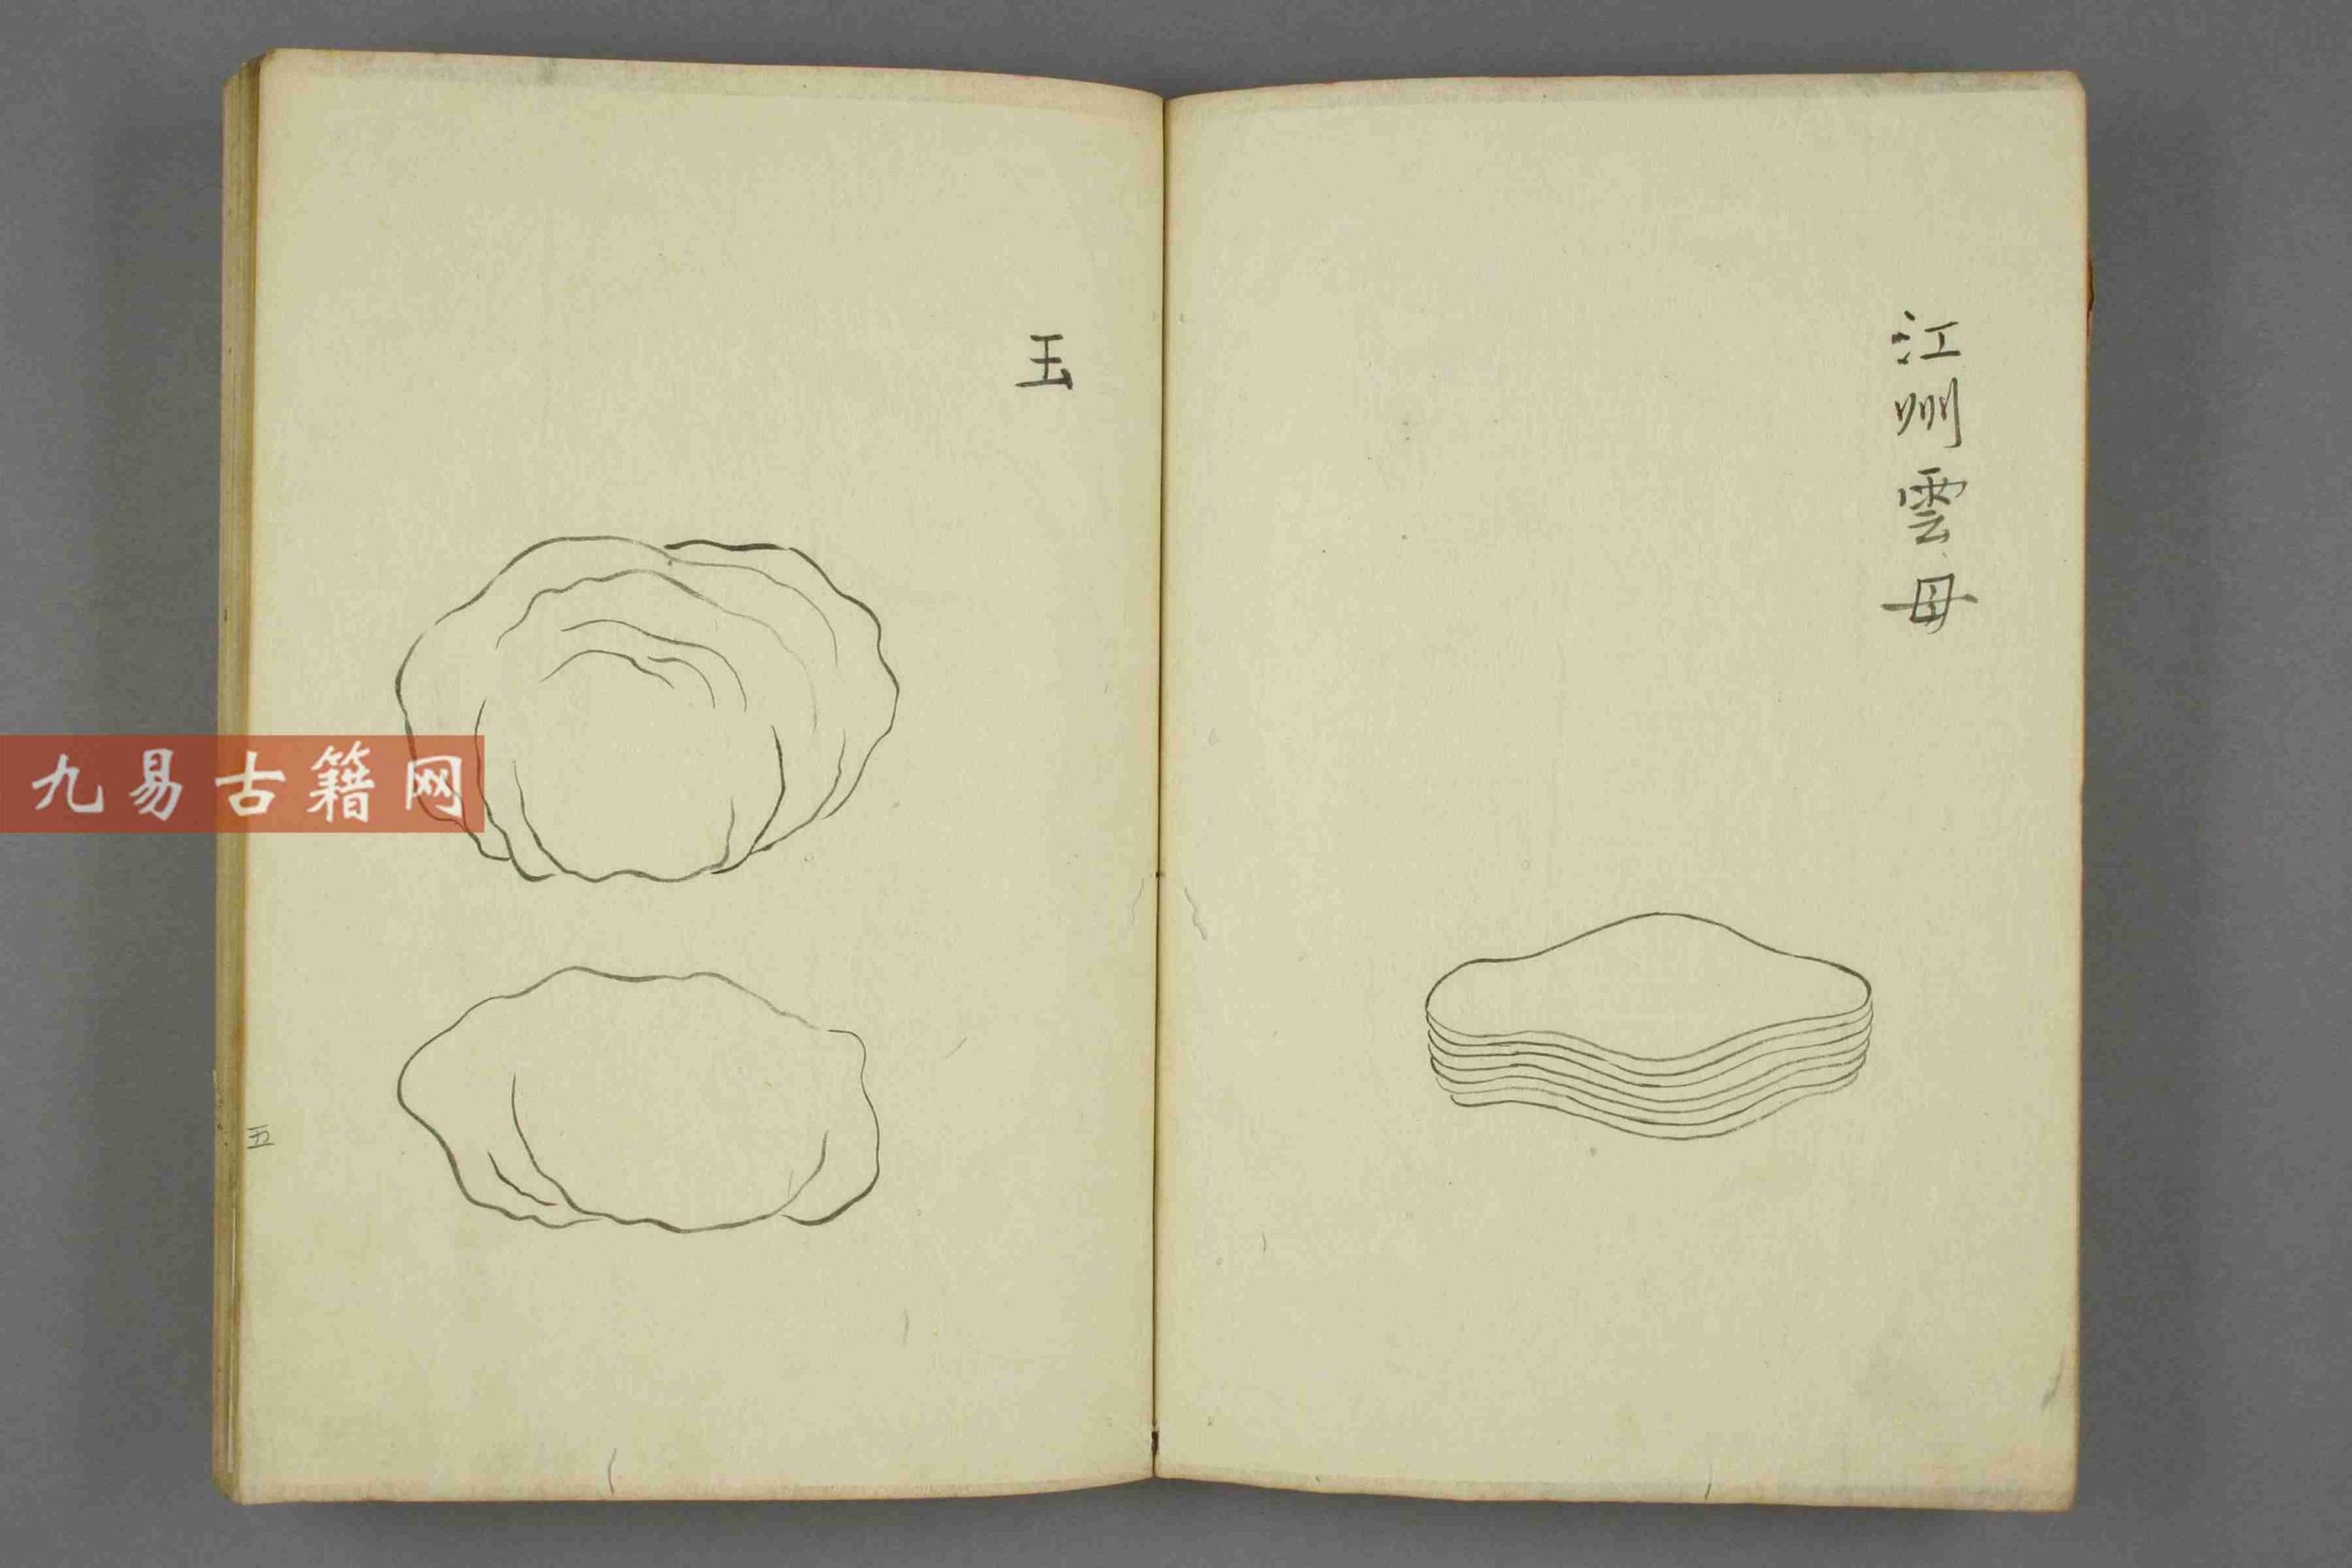 江州雲母
玉
五
九易古籍网